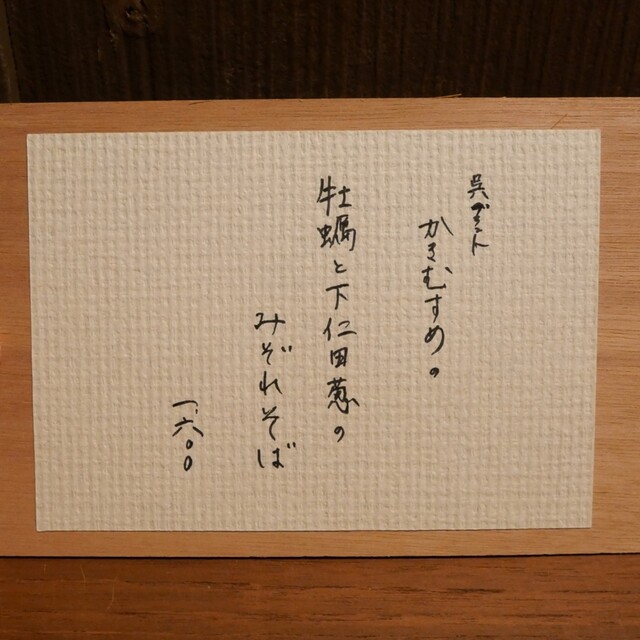 呉
かきむすめの
牡蠣と下仁田葱の
みぞれそば
一、六〇〇